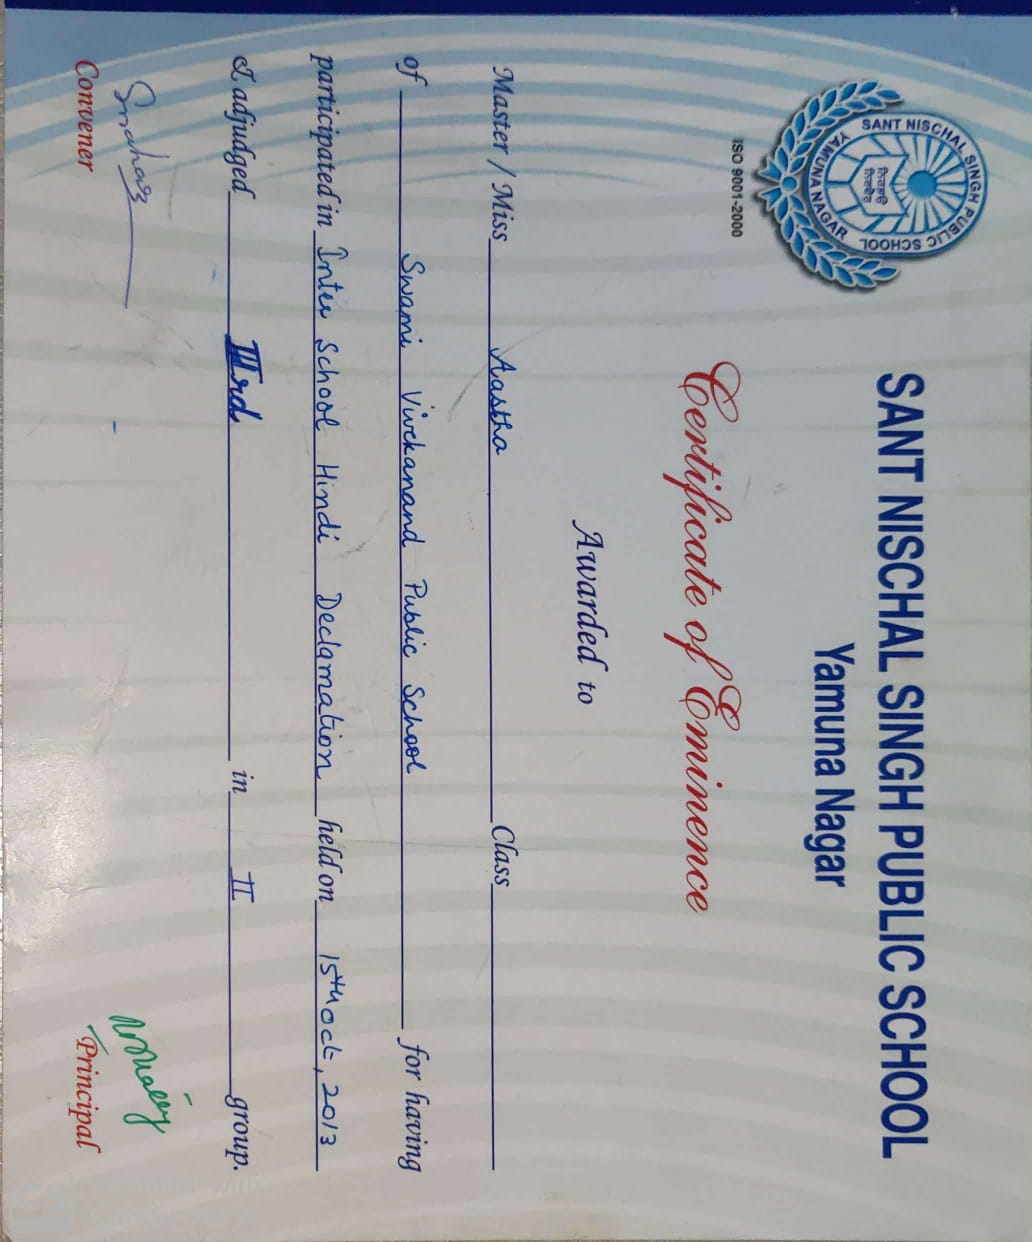 SANT NISCHAL SINGH PUBLIC SCHOOL
YAMUNA NAGAR
ਨਿਰਭਉ
ਨਿਰਵੈਰ
ISO 9001-2000
SANT NISCHAL SINGH PUBLIC SCHOOL
Yamuna Nagar
Certificate of Eminence
Awarded to
Master / Miss Aastha Class
of Swami Vivekanand Public School for having
participated in Inter School Hindi Declamation held on 15th oct, 2013
& adjudged IIIrd in II group.
Convener
Principal